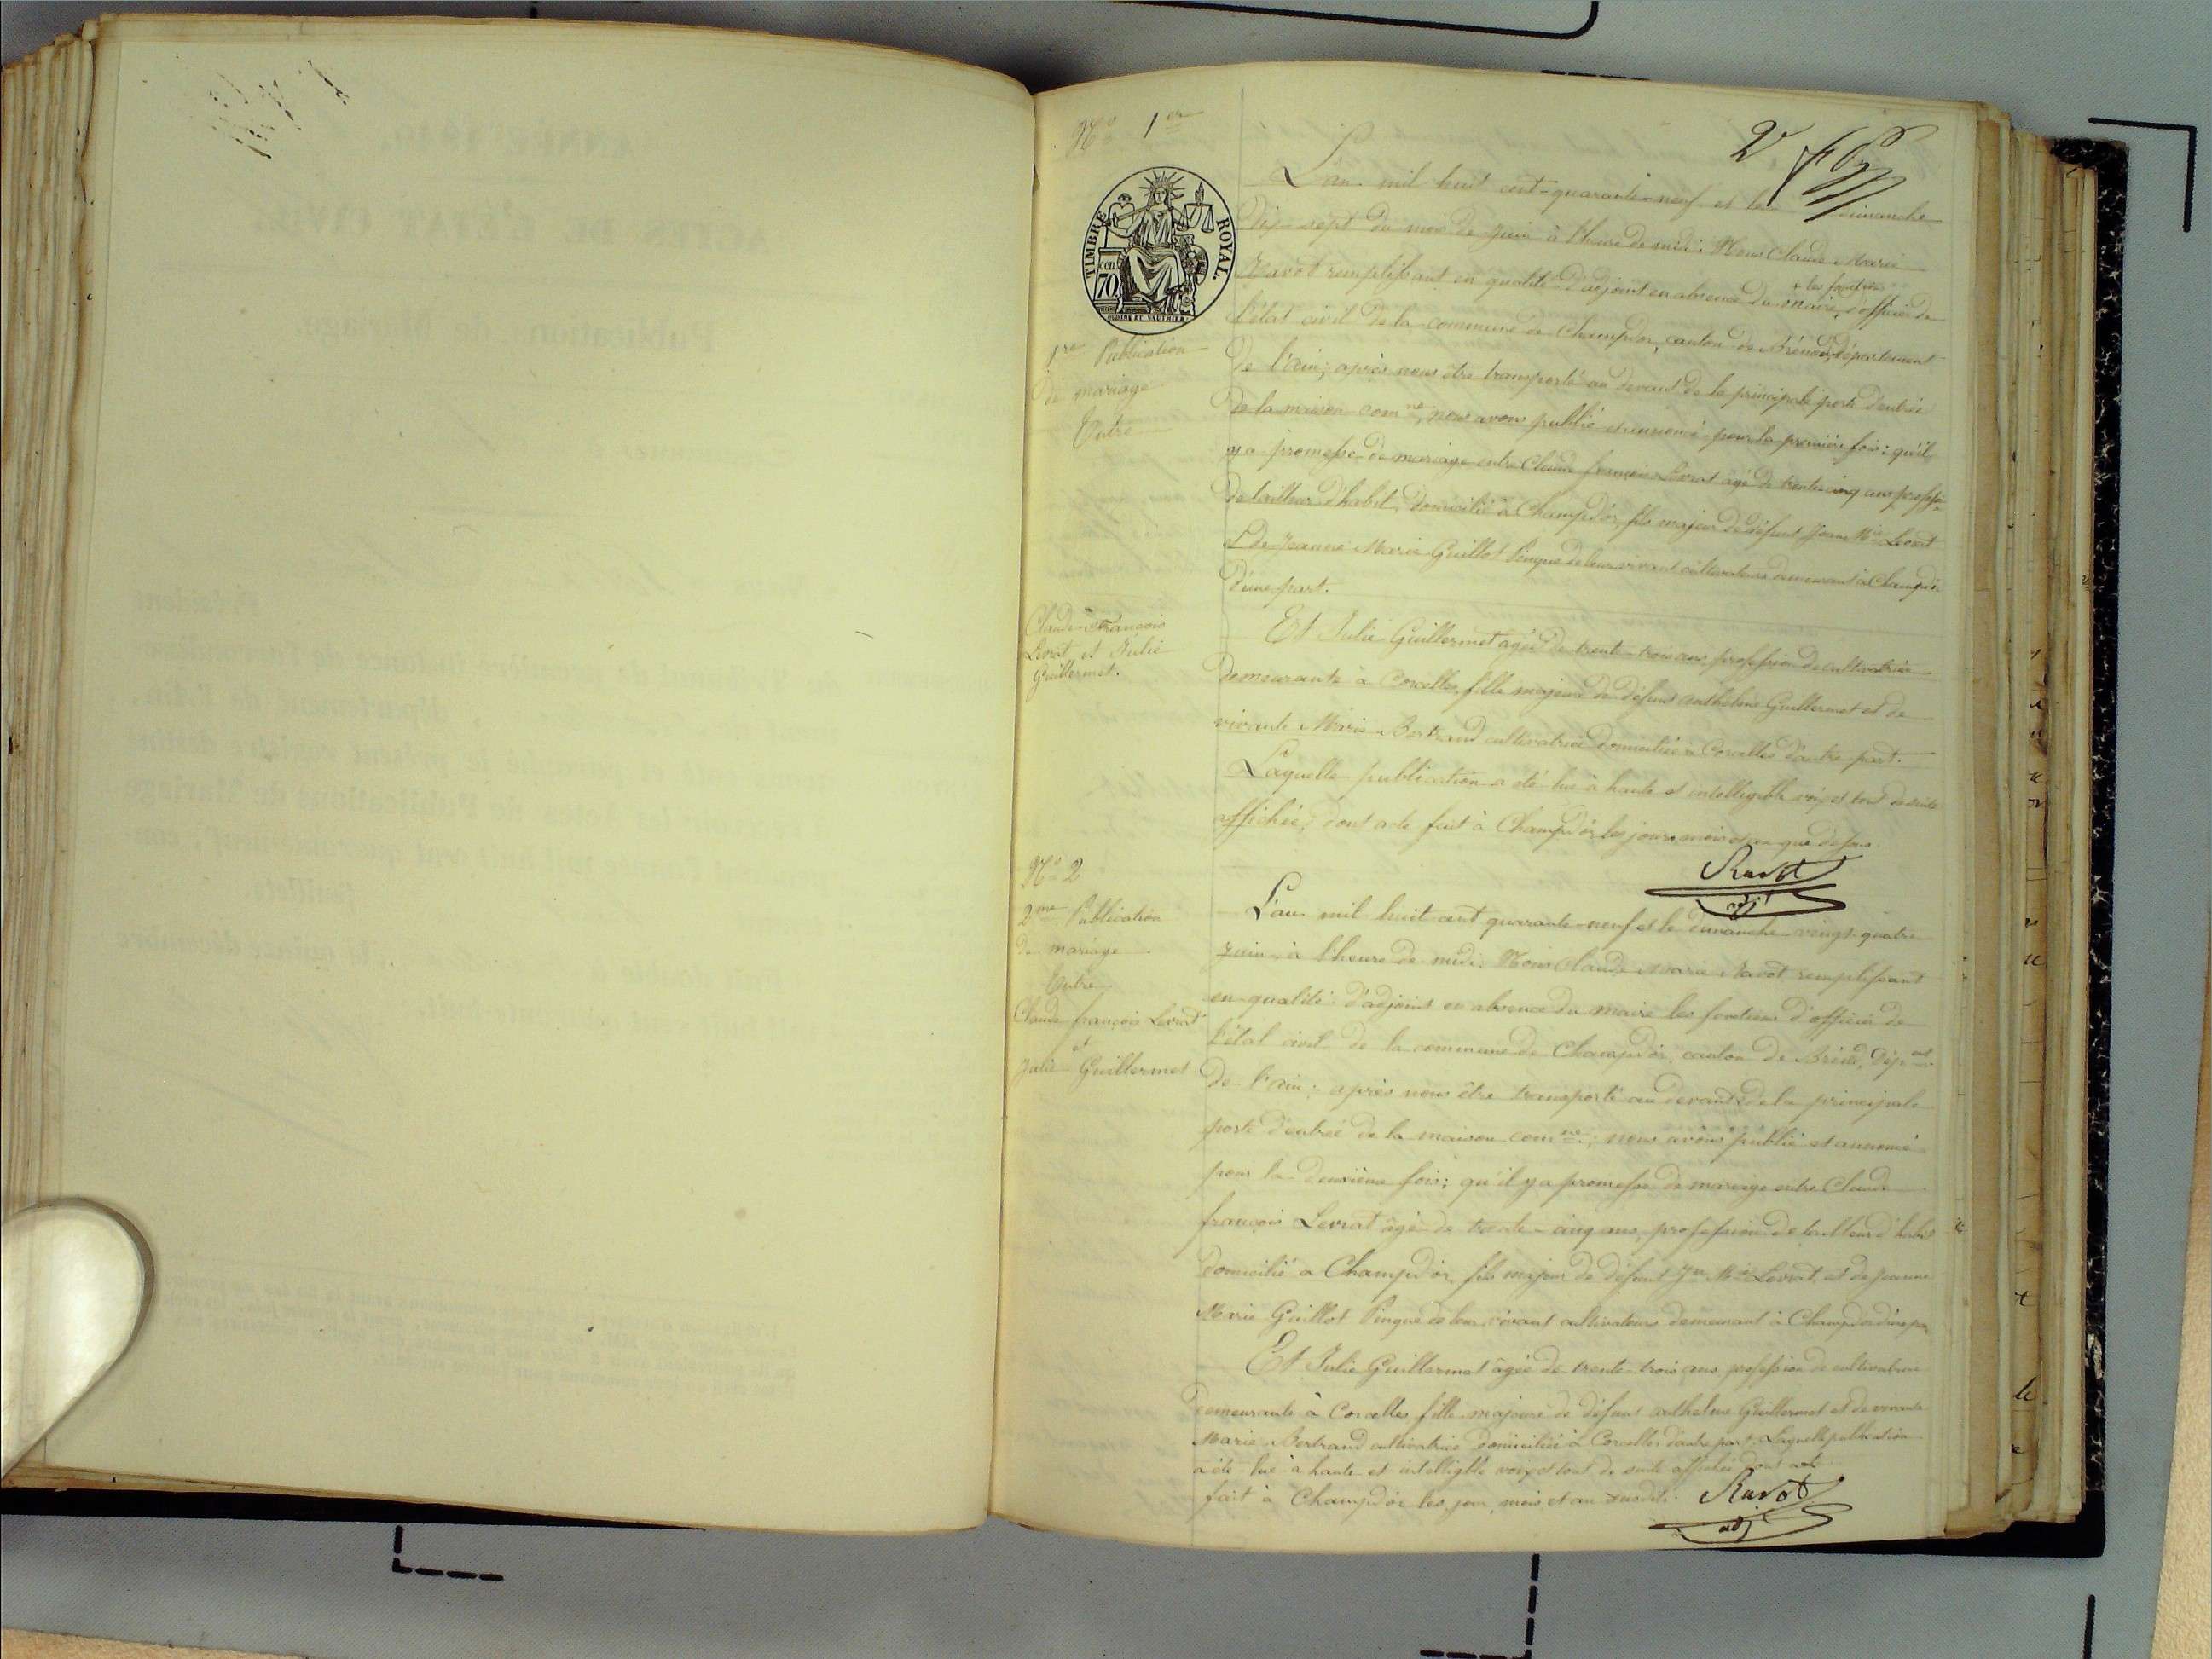 N° 1er
2e
TIMBRE ROYAL.
cen 70
1re Publication
de mariage
Entre
Claude-François
Levrat et Julie
Guillermet.
L'an mil huit cent-quarante-neuf et le dimanche
dix-sept du mois de Juin à l'heure de midi: Nous Claude Marie
Ravot remplissant en qualité d'adjoint en absence du maire + les fonctions d'officier de
l'état civil de la commune de Champdor, canton de Brénod, département
de l'ain; après nous être transporté au devant de la principale porte d'entrée
de la maison comne, nous avons publié et annoncé pour la première fois: qu'il
y a promesse de mariage entre Claude françois Levrat âgé de trente cinq ans profession
de tailleur d'habit, domicilié à Champdor, fils majeur de défunt Jean Mie Levrat
& de Jeanne Marie Guillot Pingue de leur vivant cultivateurs demeurant à Champdor
d'une part.
Et Julie Guillermet agée de trente-trois ans, profession de cultivatrice
demeurante à Corcelles, fille majeure de défunt anthelme Guillermet et de
vivante Marie Bertrand cultivatrice domiciliée à Corcelles d'autre part.
Laquelle publication a été lue à haute et intelligible voix et tout de suite
affichée, dont acte fait à Champdor les jour, mois et an que dessus
Ravot
adjt
N° 2
2me Publication
de mariage
Entre
Claude françois Levrat
et
Julie Guillermet
L'an mil huit cent quarante-neuf et le dimanche vingt-quatre
Juin, à l'heure de midi: Nous Claude Marie Ravot remplissant
en qualité d'adjoint en absence du maire les fonctions d'officier de
l'état civil de la commune de Champdor, canton de Brénod, Dépnt
de l'ain: après nous être transporté au devant de la principale
porte d'entrée de la maison comne; nous avons publié et annoncé
pour la deuxième fois; qu'il y a promesse de mariage entre Claude
françois Levrat âgé de trente-cinq ans, profession de tailleur d'habit
domicilié à Champdor, fils majeur de défunt Jn Mie Levrat et de Jeanne
Marie Guillot Pingue de leur vivant cultivateurs demeurant à Champdor d'une pa
Et Julie Guillermet âgée de trente-trois ans profession de cultivatrice
demeurante à Corcelles fille majeure de défunt anthelme Guillermet et de vivante
Marie Bertrand cultivatrice domiciliée à Corcelles d'autre part. Laquelle publication
a été lue à haute et intelligible voix et tout de suite affichée dont acte
fait à Champdor les jour, mois et an susdits. Ravot
adj